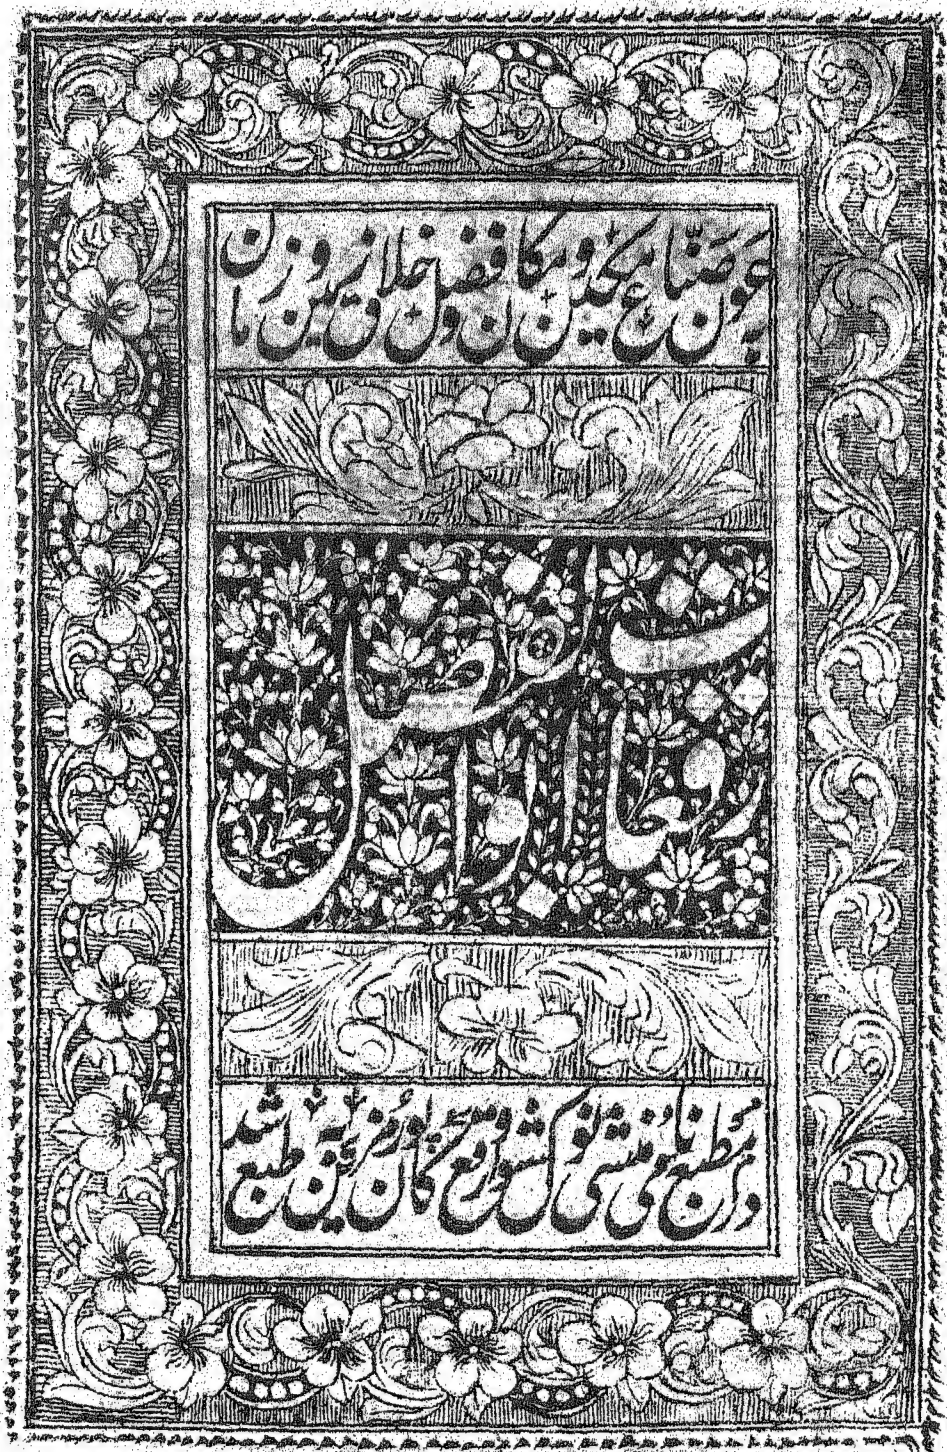 بعون صنّاع مکین و مکان و فضل خلاق زمین و زمان
رقعات ابوالفضل
در مطبع نامی منشی نولکشور واقع کانپور مزین طبع شد